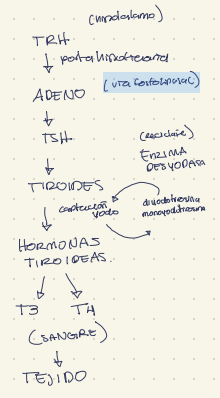 (hipotálamo)
TRH
porta hipofisaria
(vía fosfolipasa)
ADENO
TSH
(reciclaje)
ENZIMA
DESYODASA
TIROIDES
captación
yodo
diyodotirosina
monoyodotirosina
HORMONAS
TIROIDEAS
T3 T4
(SANGRE)
TEJIDO